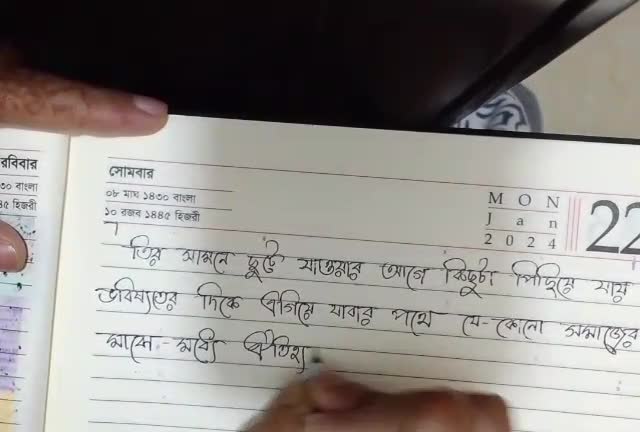 রবিবার
৩০ বাংলা
৪৫ হিজরী
সোমবার
০৮ মাঘ ১৪৩০ বাংলা
১০ রজব ১৪৪৫ হিজরী
MON
Jan
2024
22
তির সামনে ছুটে যাওয়ার আগে কিছুটা পিছিয়ে যায়
ভবিষ্যতের দিকে এগিয়ে যাবার পথে যে-কোনো সমাজের
মাঝে-মধ্যে ঐতিহ্য